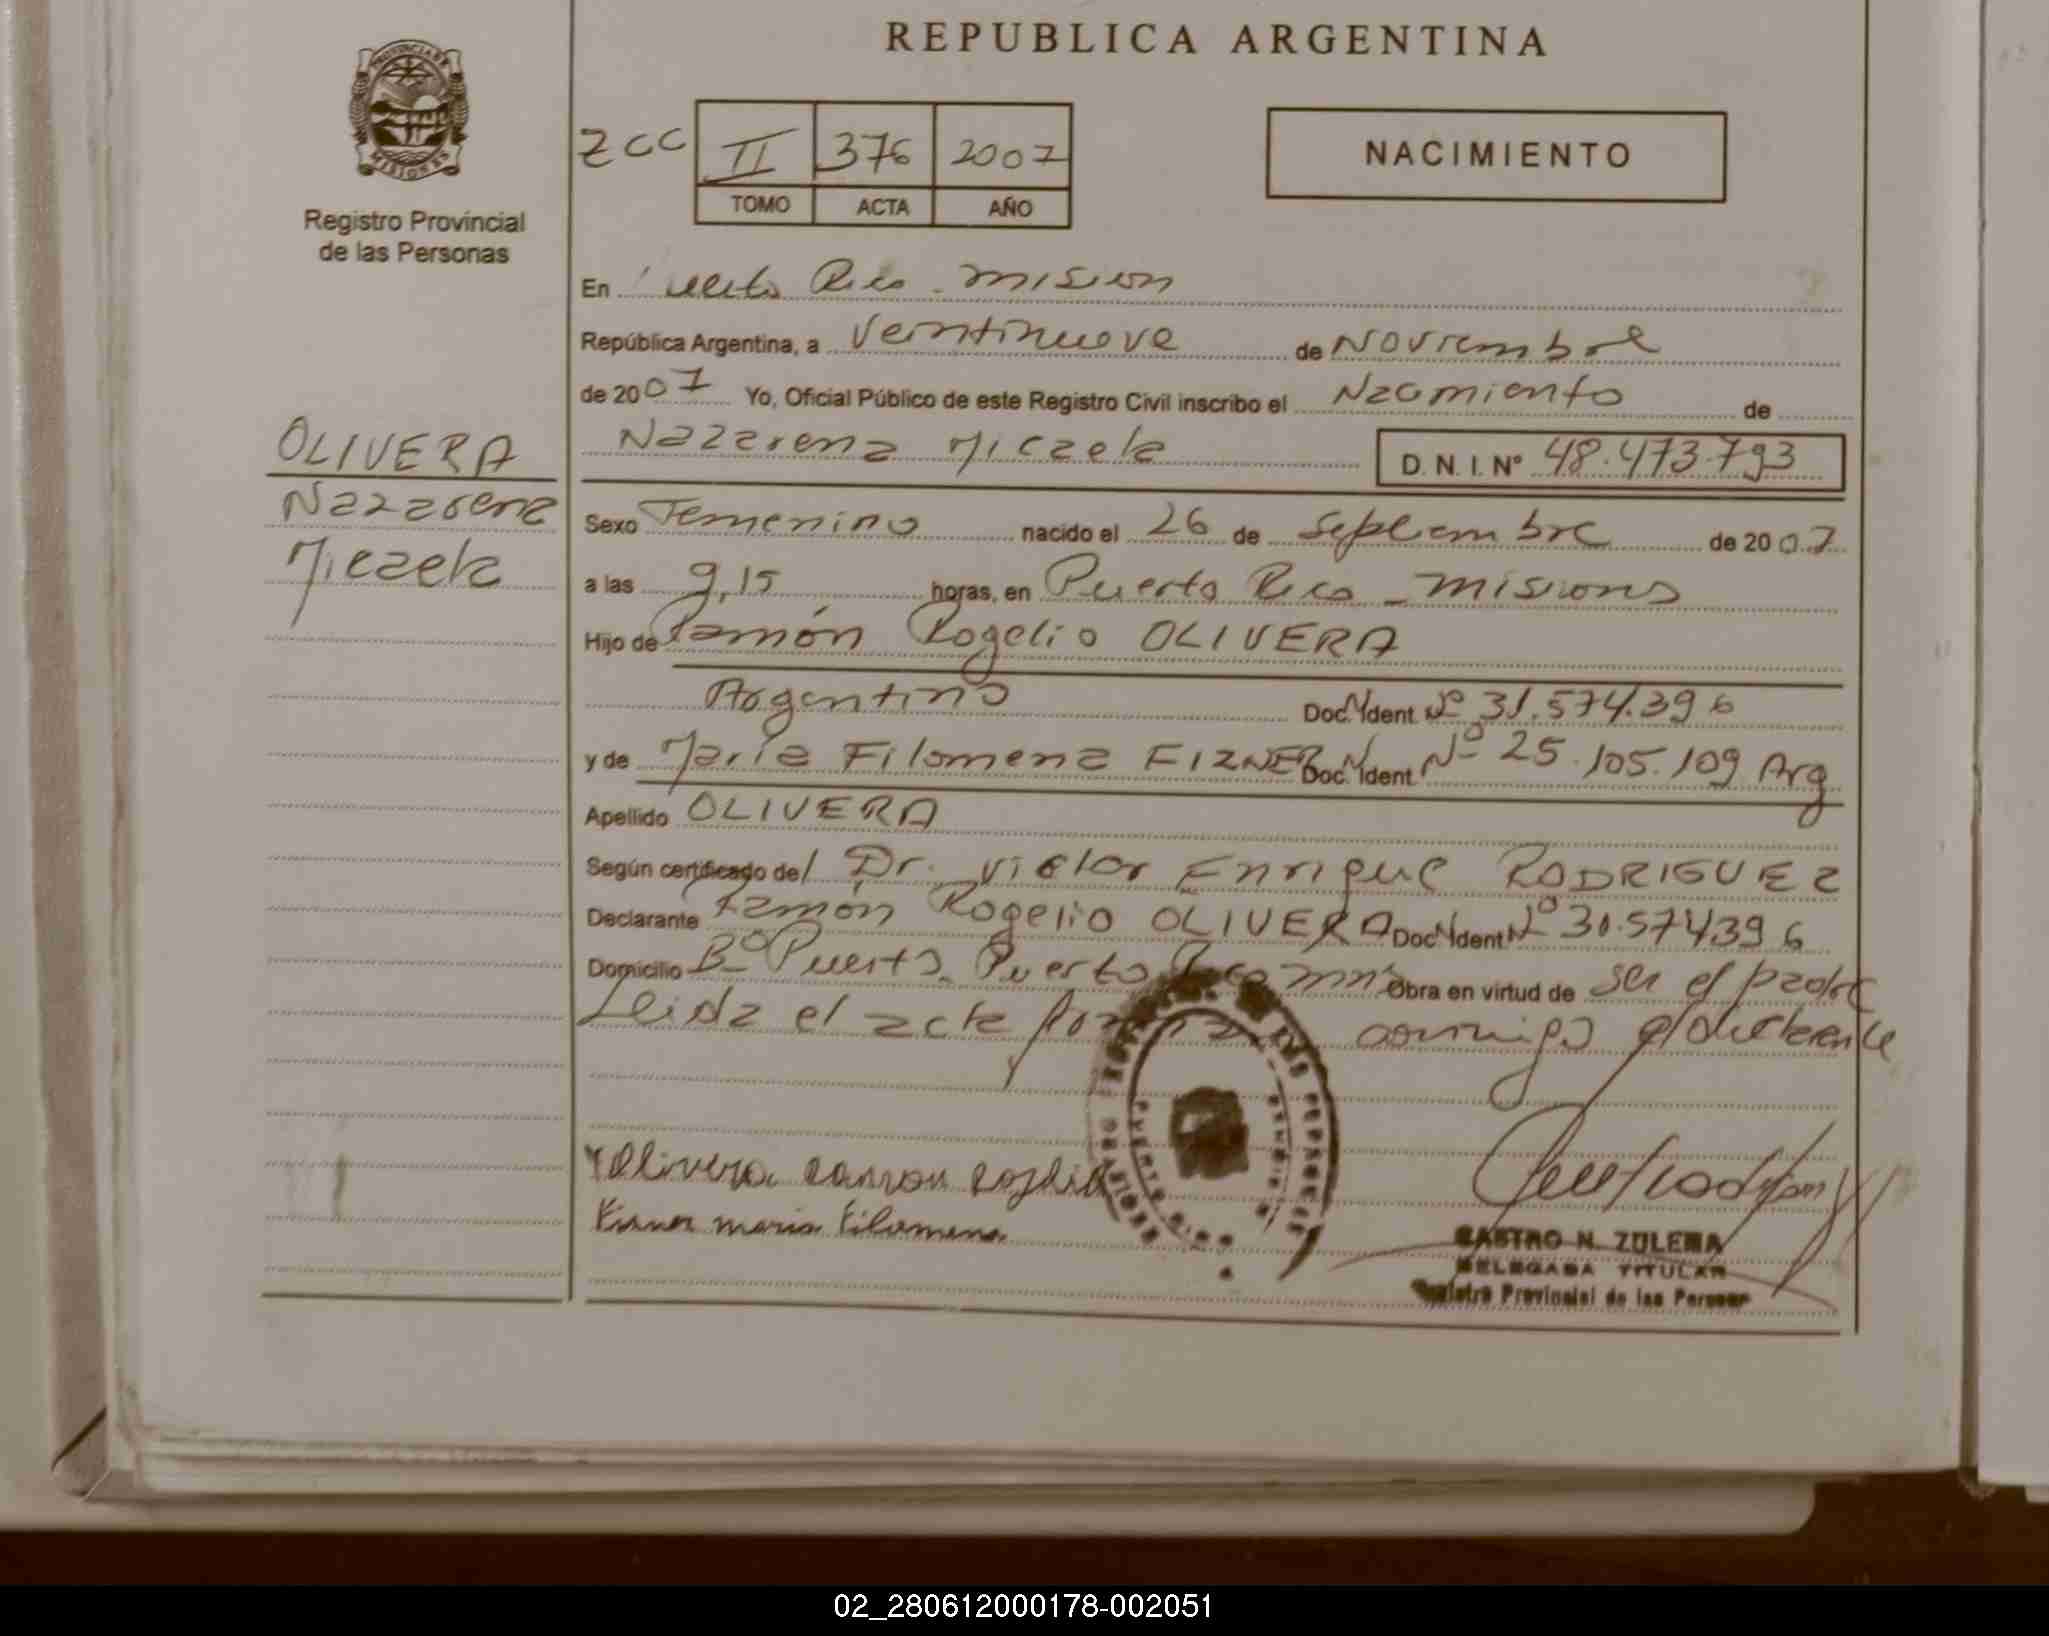 REPUBLICA ARGENTINA
PROVINCIA DE MISIONES
Registro Provincial
de las Personas
ZCC II 376 2007
TOMO ACTA AÑO
NACIMIENTO
En Puerto Rico - Mision
República Argentina, a Veintinueve de Noviembre
de 2007 Yo, Oficial Público de este Registro Civil inscribo el Nacimiento de
Nazarena Micaela D. N. I. Nº 48.473.793
OLIVERA
Nazarena
Micaela
Sexo Femenino nacido el 26 de Septiembre de 2007
a las 9,15 horas, en Puerto Rico - Misiones
Hijo de Ramón Rogelio OLIVERA
Argentino Doc. Ident. Nº 31.574.396
y de María Filomena EIZNER Doc. Ident. Nº 25.105.109 Arg
Apellido OLIVERA
Según certificado del Dr. Victor Enrique RODRIGUEZ
Declarante Ramón Rogelio OLIVERA Doc. Ident Nº 30.574396
Domicilio Bº Puerto - Puerto Rico Mnes Obra en virtud de ser el padre
Leida el acta firma conmigo el declarante
Olivera Ramon Rogelio
maria filomena
CASTRO N. ZULEMA
DELEGADA TITULAR
Registro Provincial de las Personas
02_280612000178-002051